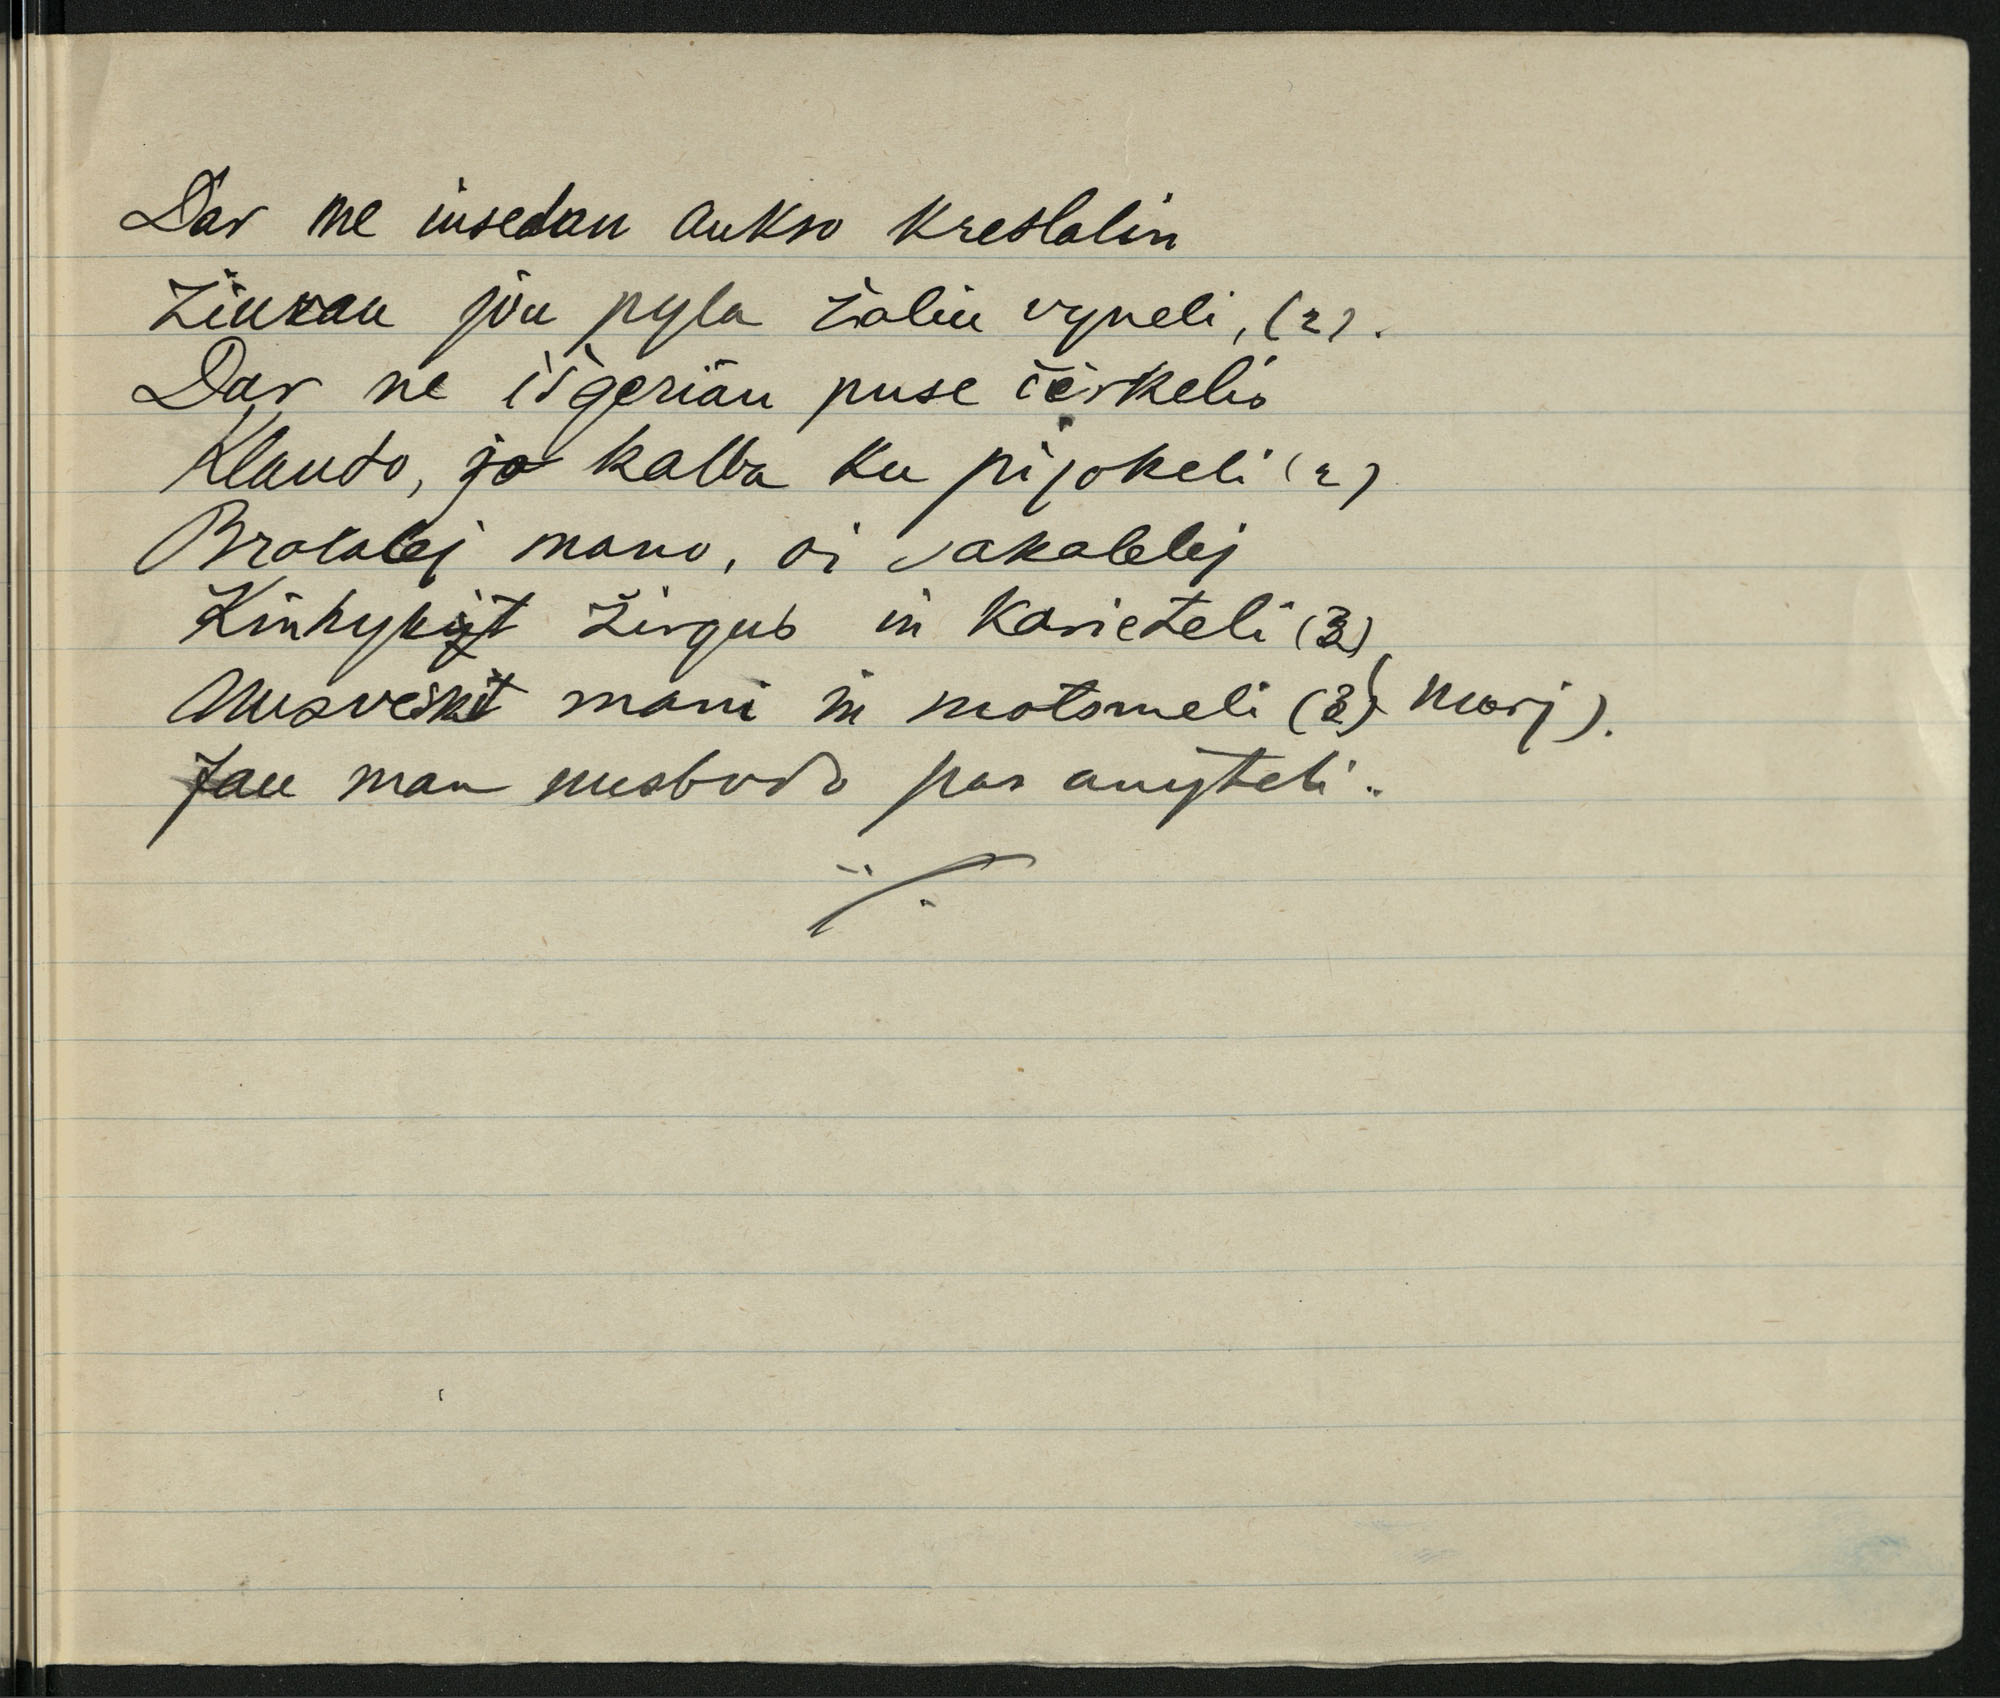 Dar ne insedau aukso kreslalin
Žiurau jau pyla žaliu vyneli, (2).
Dar ne išgeriau puse čerkelio
Klauso, jo kalba ku pijokeli (2)
Brolalej mano, oi sakalelej
Kinkykit žirgus in karieteli (3)
Nusveskit mani in motomeli (3) (Marj).
Jau man nusbodo pas anyteli..